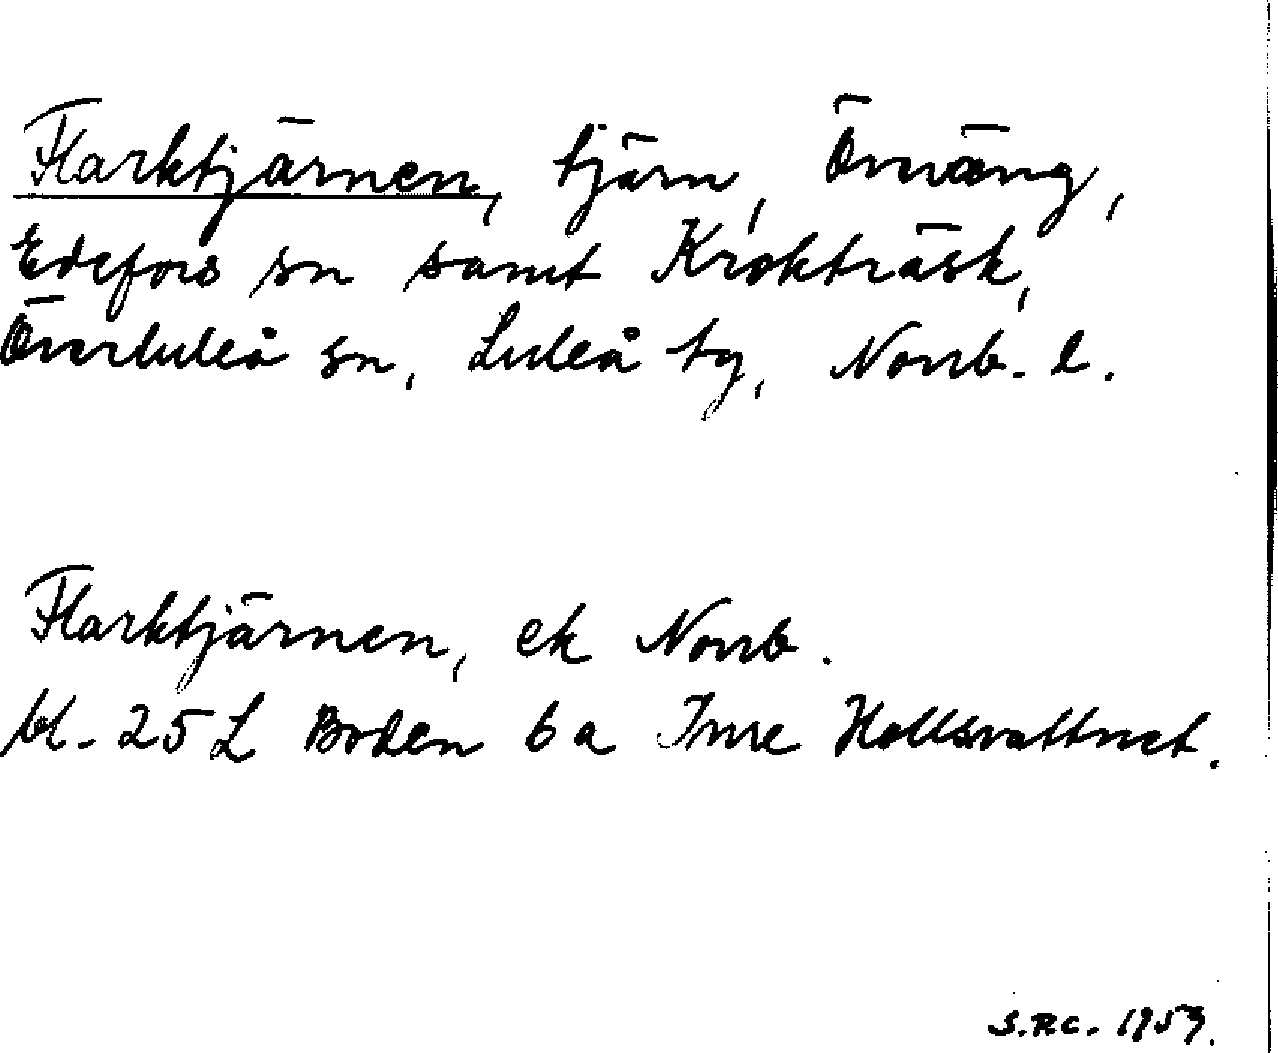 Flarktjärnen, tjärn, Örnäng,
Edefors sn samt Krokträsk,
Överluleå sn, Luleå tg, Norrb. l.
Flarktjärnen, ek Norrb.
bl. 25 L Boden 6 a Inre Hällsvattnet.
S.R.C. 1959.